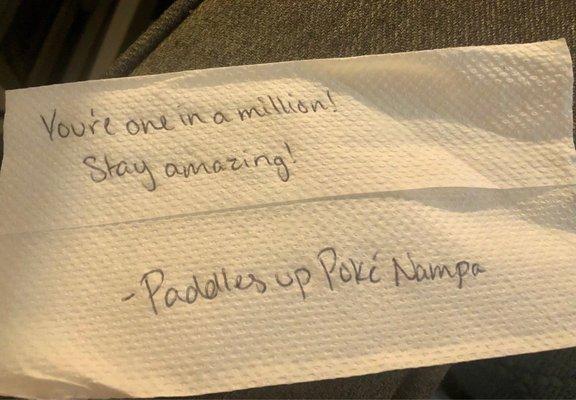 You're one in a million!
Stay amazing!
-Paddles up Poké Nampa